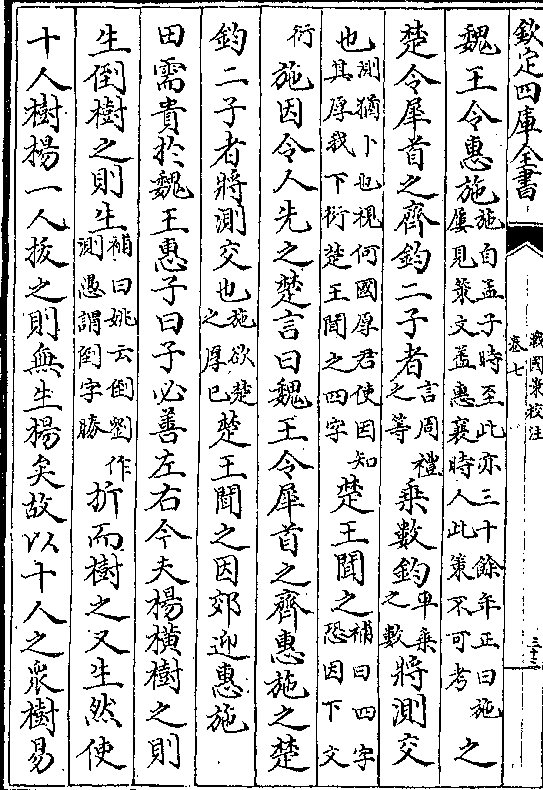 欽定四庫全書
戰國策校注
卷七
三十三
魏王令惠施施自孟子時至此亦三十餘年正曰施屢見策文蓋惠襄時人此策不可考之
楚令犀首之齊鈞二子者言周禮之等乘數鈞車乘之數將測交
也測猶卜也視何國厚君使因知其厚我下衍楚王聞之四字楚王聞之補曰四字恐因下文
衍施因令人先之楚言曰魏王令犀首之齊惠施之楚
鈞二子者將測交也施欲楚之厚已楚王聞之因郊迎惠施
田需貴於魏王惠子曰子必善左右今夫楊橫樹之則
生倒樹之則生補曰姚云倒劉作測愚謂倒字勝折而樹之又生然使
十人樹楊一人拔之則無生楊矣故以十人之衆樹易